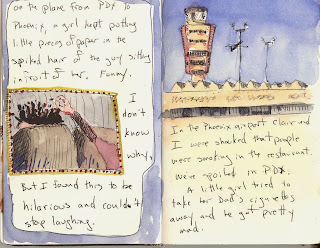 on the plane from PDX to
Phoenix, a girl kept putting
little pieces of paper in the
spiked hair of the guy sitting
in front of her. Funny.
I
don't
know
why,
But I found this to be
hilarious and couldn't
stop laughing.
In the Phoenix airport Claire and
I were shocked that people
were smoking in the restaurant.
We're spoiled in PDX.
A little girl tried to
take her Dad's cigarettes
away and he got pretty
mad.